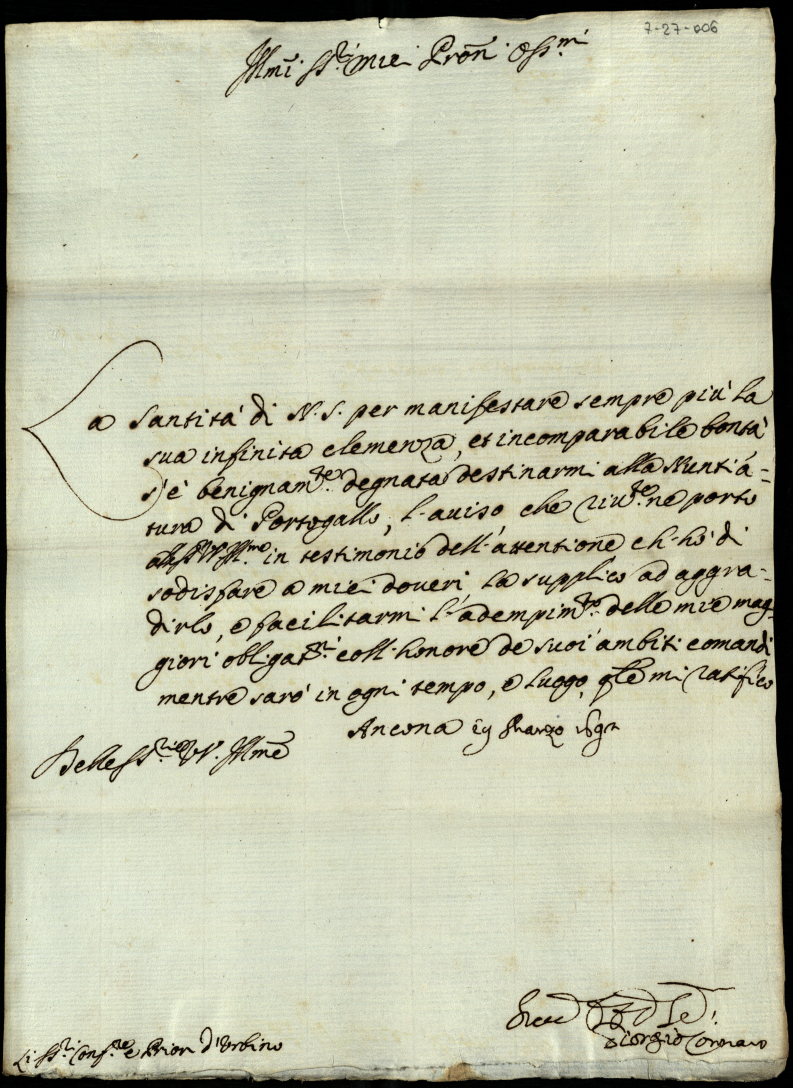 7-27-006
Ill.mi SS.ri miei Pron̄i Oss.mi
La Santità di N. S. per manifestare sempre più la
sua infinita clemenza, et incomparabile bontà
s'è benignam.te degnata destinarmi alla Nuntia=
tura di Portogallo, l'auiso che riu.te ne porto
alle SS. VV. Ill.me in testimonio dell'attentione ch'hò di
sodisfare a miei doueri, la supplico ad aggra=
dirlo, e facilitarmi l'adempim.to delle mie mag
giori obligat.ni coll'honore de suoi ambiti comandi
mentre sarò in ogni tempo, e luogo, q̄le mi ratifico
Ancona Marzo
Delle SS.rie VV. Ill.me
Giorgio Cornaro
Li SS.ri Conf.re e Priori d'Urbino